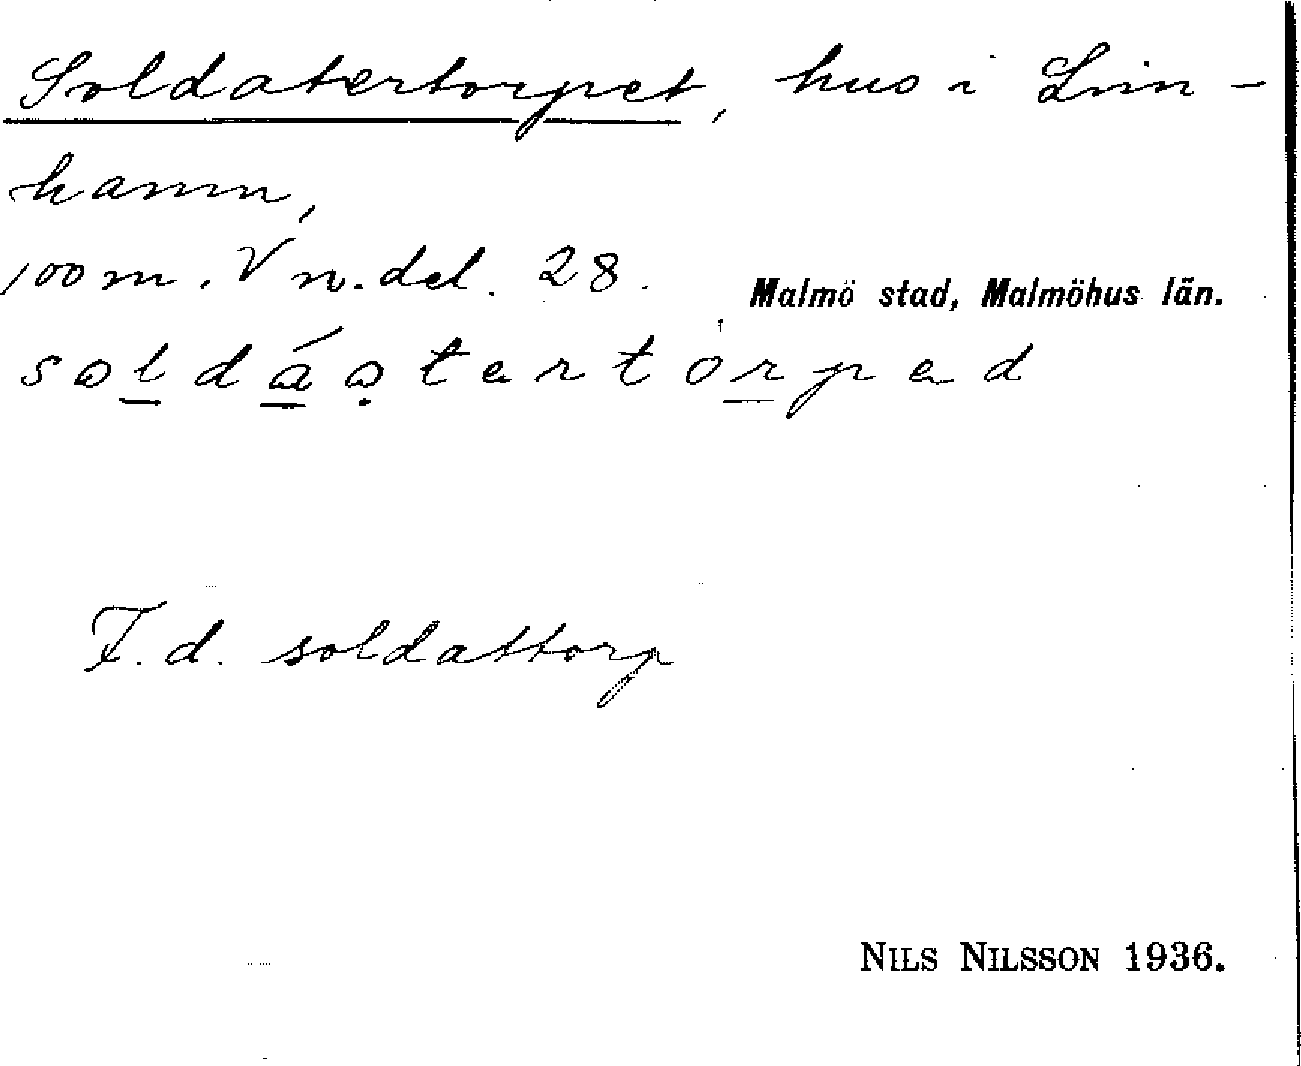 Soldatertorpet, hus i Lim-
hamn,
100 m. V n. del. 28.
Malmö stad, Malmöhus län.
soldáatertorped
F. d. soldattorp
NILS NILSSON 1936.